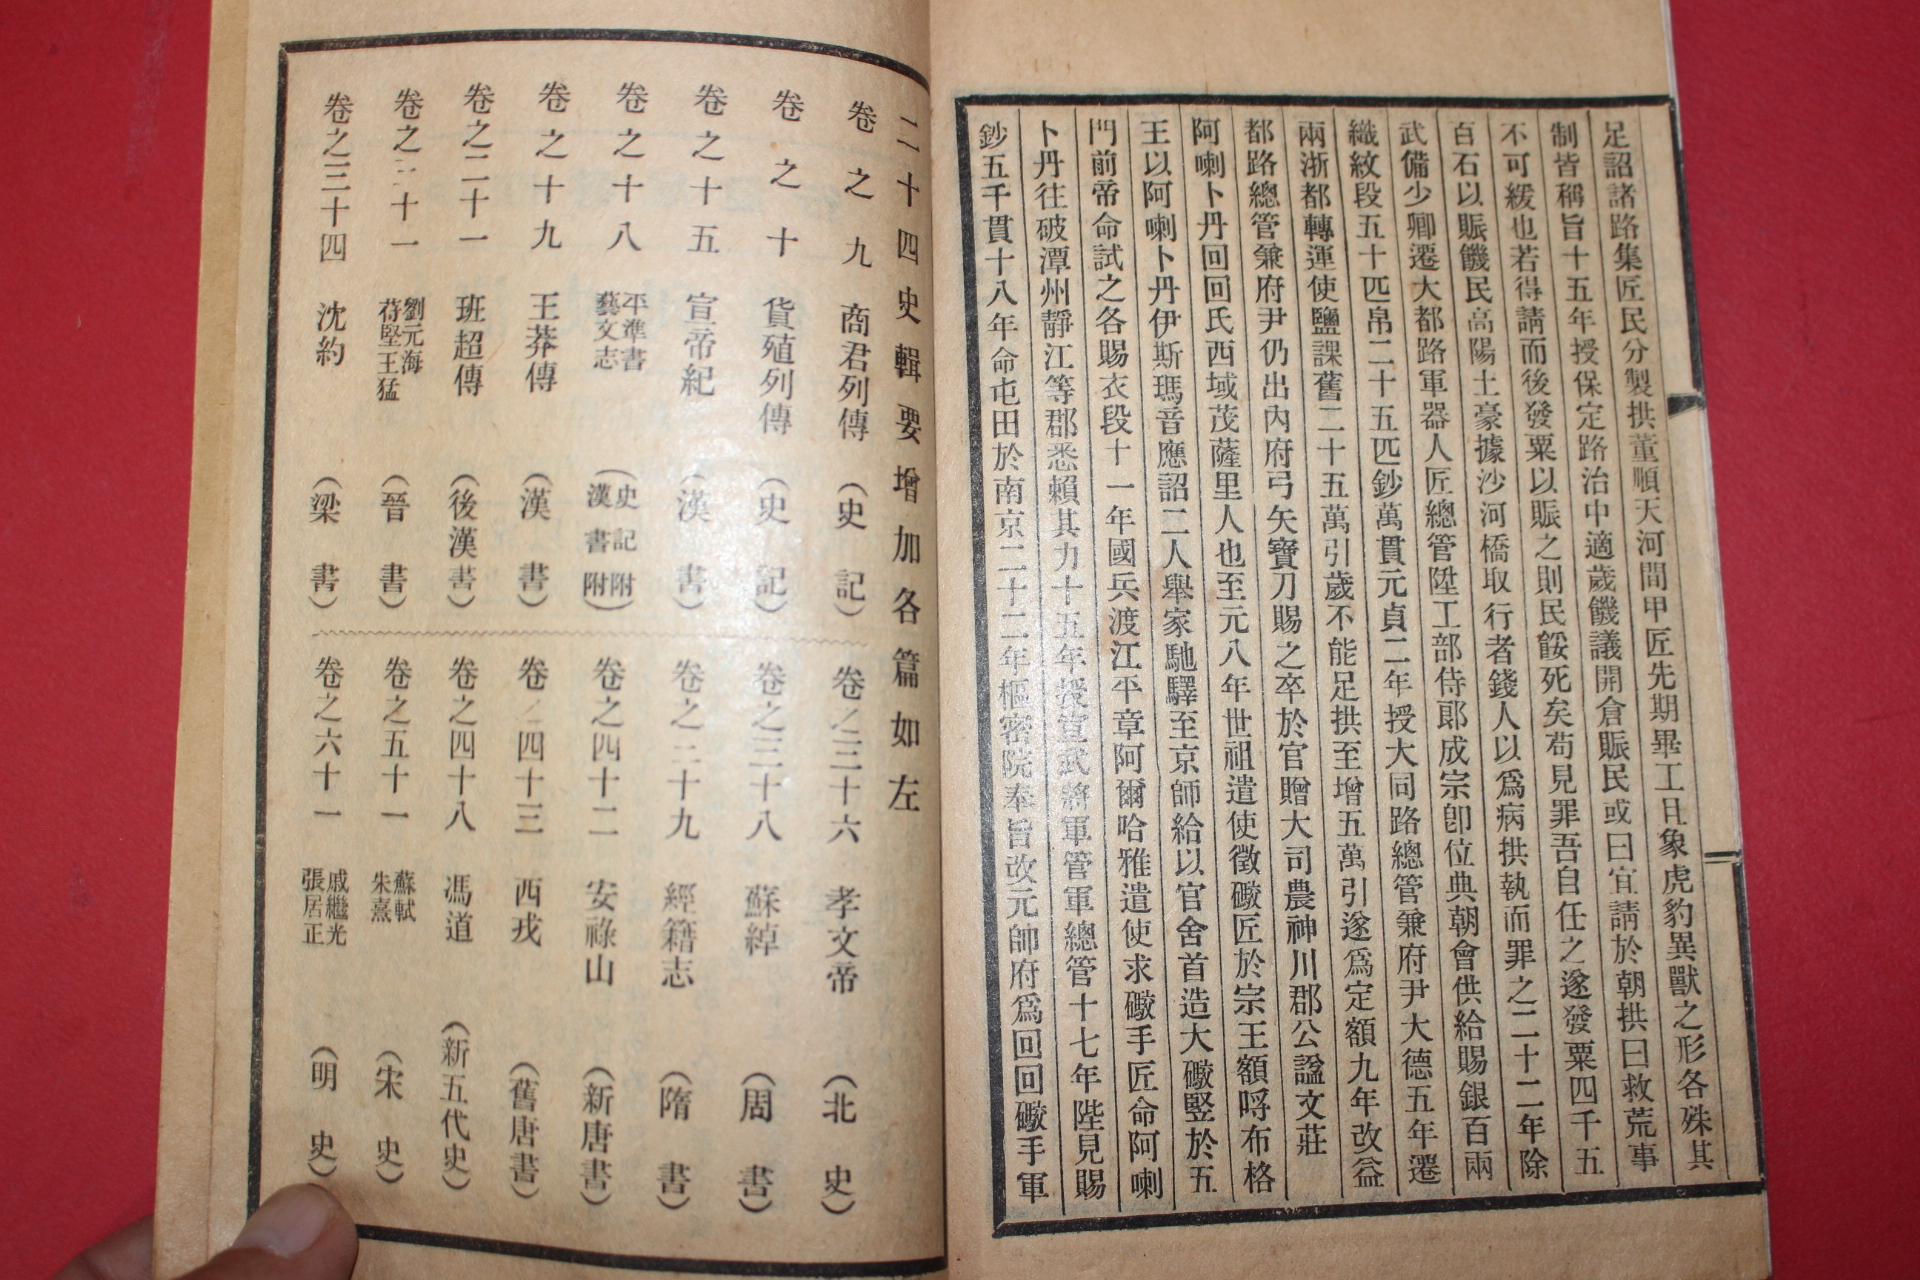 足詔諸路集匠民分製拱董順天河間甲匠先期畢工且象虎豹異獸之形各殊其
制皆稱旨十五年授保定路治中適歲饑議開倉賑民或曰宜請於朝拱曰救荒事
不可緩也若得請而後發粟以賑之則民餒死矣苟見罪吾自任之遂發粟四千五
百石以賑饑民高陽土豪據沙河橋取行者錢人以爲病拱執而罪之二十二年除
武備少卿遷大都路軍器人匠總管陞工部侍郎成宗卽位典朝會供給賜銀百兩
織紋段五十匹帛二十五匹鈔萬貫元貞二年授大同路總管兼府尹大德五年遷
兩浙都轉運使鹽課舊二十五萬引歲不能足拱至增五萬引遂爲定額九年改益
都路總管兼府尹仍出內府弓矢寶刀賜之卒於官贈大司農神川郡公諡文莊
阿喇卜丹回回氏西域茂薩里人也至元八年世祖遣使徵礮匠於宗王額哷布格
王以阿喇卜丹伊斯瑪音應詔二人舉家馳驛至京師給以官舍首造大礮竪於五
門前帝命試之各賜衣段十一年國兵渡江平章阿爾哈雅遣使求礮手匠命阿喇
卜丹往破潭州靜江等郡悉賴其力十五年授宣武將軍管軍總管十七年陛見賜
鈔五千貫十八年命屯田於南京二十二年樞密院奉旨改元帥府爲回回礮手軍
二十四史輯要增加各篇如左
卷之九 商君列傳 （史記） 卷之三十六 孝文帝 （北史）
卷之十 貨殖列傳 （史記） 卷之三十八 蘇綽 （周書）
卷之十五 宣帝紀 （漢書） 卷之三十九 經籍志 （隋書）
卷之十八 平準書 藝文志 （史記附 漢書附） 卷之四十二 安祿山 （新唐書）
卷之十九 王莽傳 （漢書） 卷之四十三 西戎 （舊唐書）
卷之二十一 班超傳 （後漢書） 卷之四十八 馮道 （新五代史）
卷之三十一 劉元海 苻堅王猛 （晉書） 卷之五十一 蘇軾 朱熹 （宋史）
卷之三十四 沈約 （梁書） 卷之六十一 戚繼光 張居正 （明史）